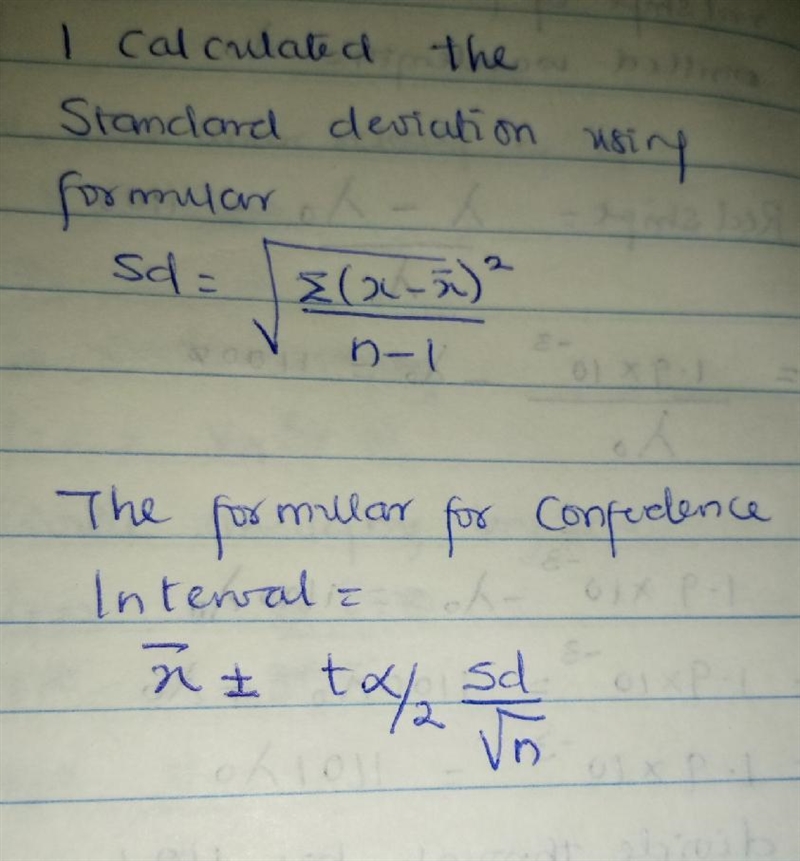 I Calculated the
Standard deviation using
formular
Sd = √(Σ(x-x̄)² / n-1)
The formular for Confidence
Interval =
x̄ ± tα/2 Sd/√n